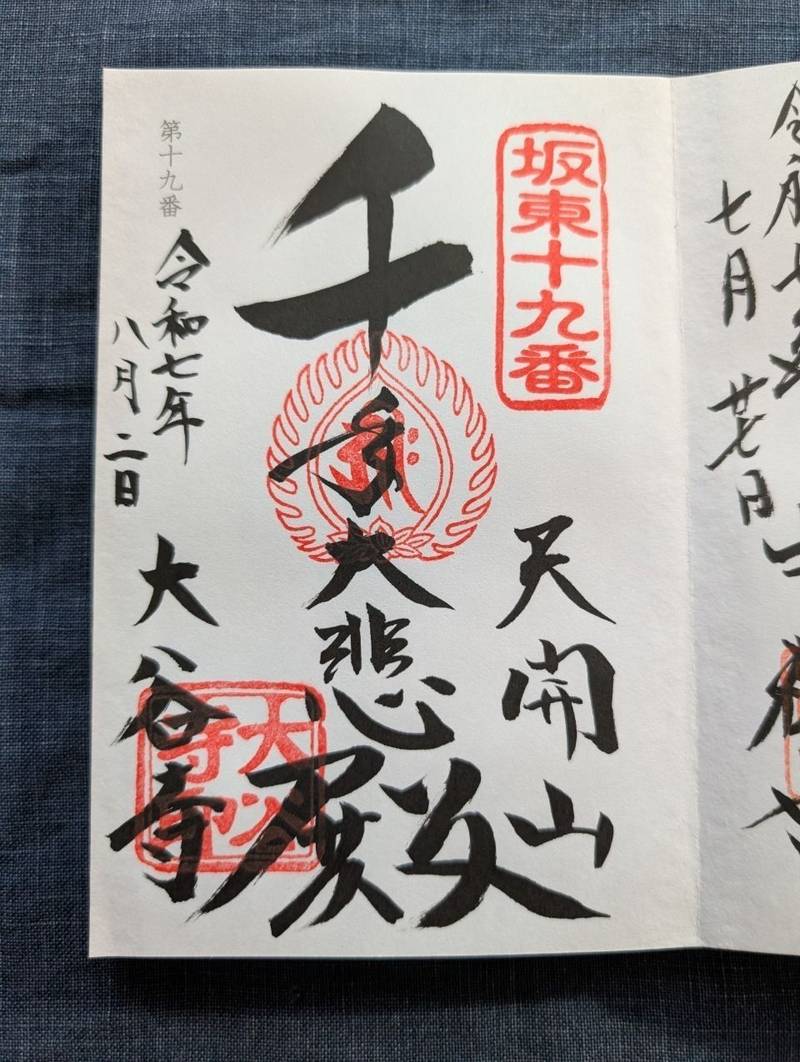 令和七年
七月廿七日
坂東十九番
天開山
千手大悲殿
大谷寺印
第十九番
令和七年
八月二日
大谷寺